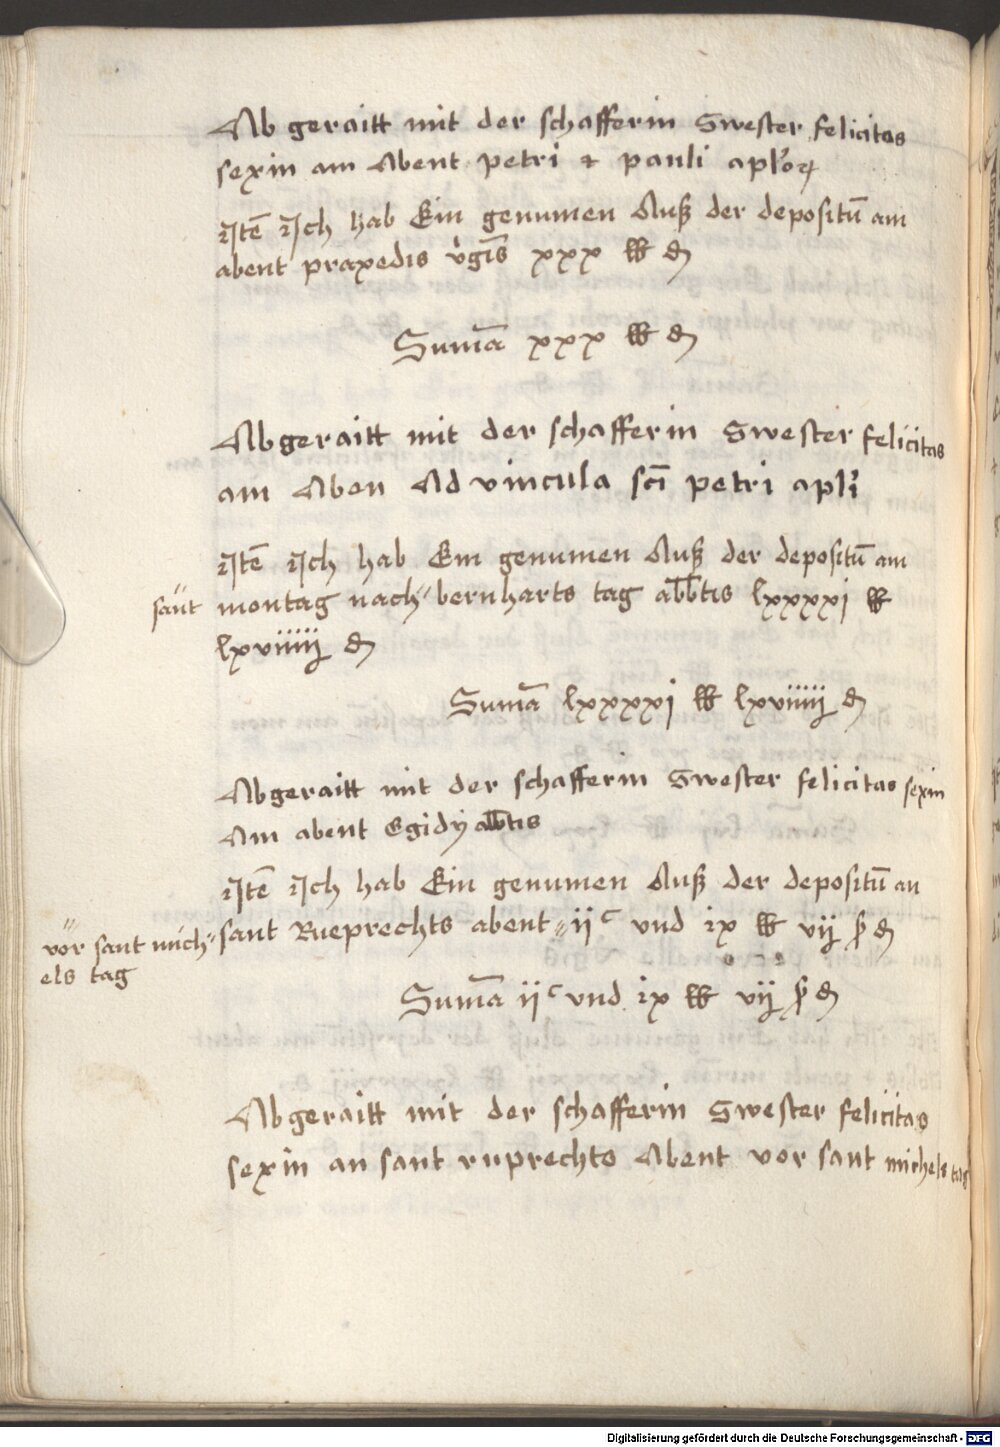 Ab geraitt mit der schafferin Swester felicitas
sexin am Abent petri & pauli aplo&#42845;
Jtē Jch hab Ein genumen Auß der depositū am
abent praxedis v̓gīs xxx ℔ ₰
Sum̄a xxx ℔ ₰
Abgeraitt mit der schafferin Swester felicitas
am Aben Ad vincula scī petri apl̓i
Jtē Jch hab Ein genumen Auß der depositū am
montag nach" bernharts tag abb̄tis lxxxxj ℔
"sant
lxviiiij ₰
Sum̄a lxxxxj ℔ lxviiiij ₰
Abgeraitt mit der schafferin Swester felicitas sexin
Am abent Egidÿ abb̄tis
Jtē Jch hab Ein genumen Auß der depositū an
sant Rueprechts abent" ijᶜ vnd ix ℔ vij ẞ ₰
"vor sant mich"
els tag
Sum̄a ijᶜ vnd ix ℔ vij ẞ ₰
Abgeraitt mit der schafferin Swester felicitas
sexin an sant ruprechts Abent vor sant michels tag
Digitalisierung gefördert durch die Deutsche Forschungsgemeinschaft - DFG